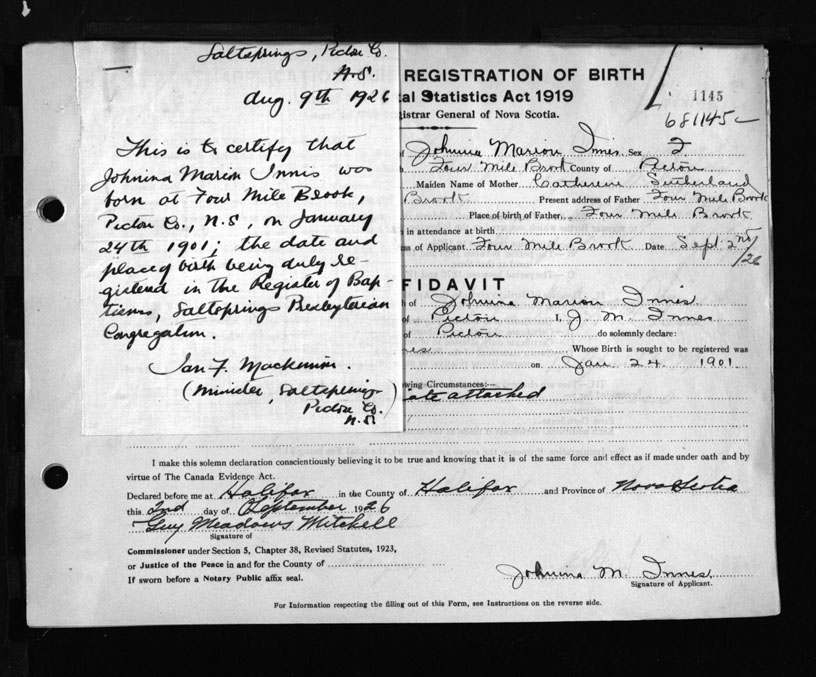 Saltsprings, Pictou Co.
N.S.
Aug. 9th 1926
This is to certify that
Johnina Marion Innis was
born at Four Mile Brook,
Pictou Co., N.S, on January
24th 1901; the date and
place of birth being duly re-
gistered in the Register of Bap-
tisms, Saltsprings Presbyterian
Congregation.
Ian F. Mackinnon.
(Minister, Saltsprings
Pictou Co.)
N.S.
REGISTRATION OF BIRTH
tal Statistics Act 1919
1145
gistrar General of Nova Scotia.
681145
of Johnina Marion Innis Sex F
th Four Mile Brook County of Pictou
Maiden Name of Mother Catherine Sutherland
Brook Present address of Father Four Mile Brook
Place of birth of Father Four Mile Brook
n in attendance at birth
ss of Applicant Four Mile Brook Date Sept 2nd/26
FIDAVIT
h of Johnina Marion Innes
of Pictou I, J. M. Innes
of Pictou do solemnly declare:
nes Whose Birth is sought to be registered was
on Jan 24 1901
owing Circumstances:—
cate attached
I make this solemn declaration conscientiously believing it to be true and knowing that it is of the same force and effect as if made under oath and by
virtue of The Canada Evidence Act.
Declared before me at Halifax in the County of Halifax and Province of Nova Scotia
this 2nd day of September 1926
Guy Meadows Mitchell
Signature of
Commissioner under Section 5, Chapter 38, Revised Statutes, 1923,
or Justice of the Peace in and for the County of
If sworn before a Notary Public affix seal.
Johnina M. Innes
Signature of Applicant.
For Information respecting the filling out of this Form, see Instructions on the reverse side.